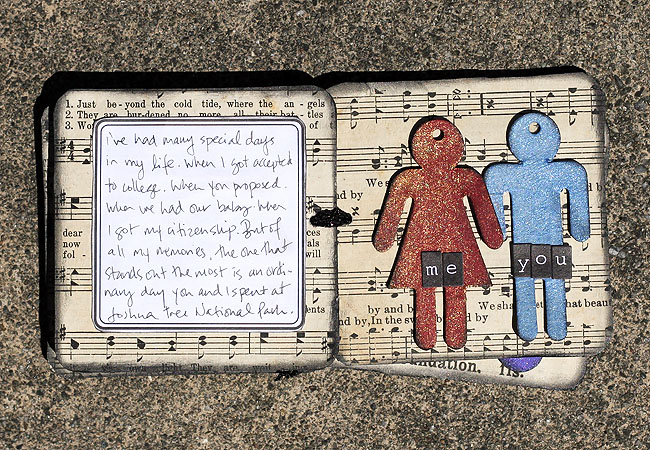 1. Just be-yond the cold tide, where the an-gels
2. They are bur-dened no more, all their bat-tles
3. Wo of
I've had many special days
in my life. When I got accepted
to college. When you proposed.
When we had our baby. When
I got my citizenship. But of
all my memories, the one that
stands out the most is an ordi-
nary day you and I spent at
Joshua Tree National Park.
dear
now
fol-
als
will
ents
We s
nd by
me you
by and b
We sha that beau
nd by, In the sw
ndation, fis.